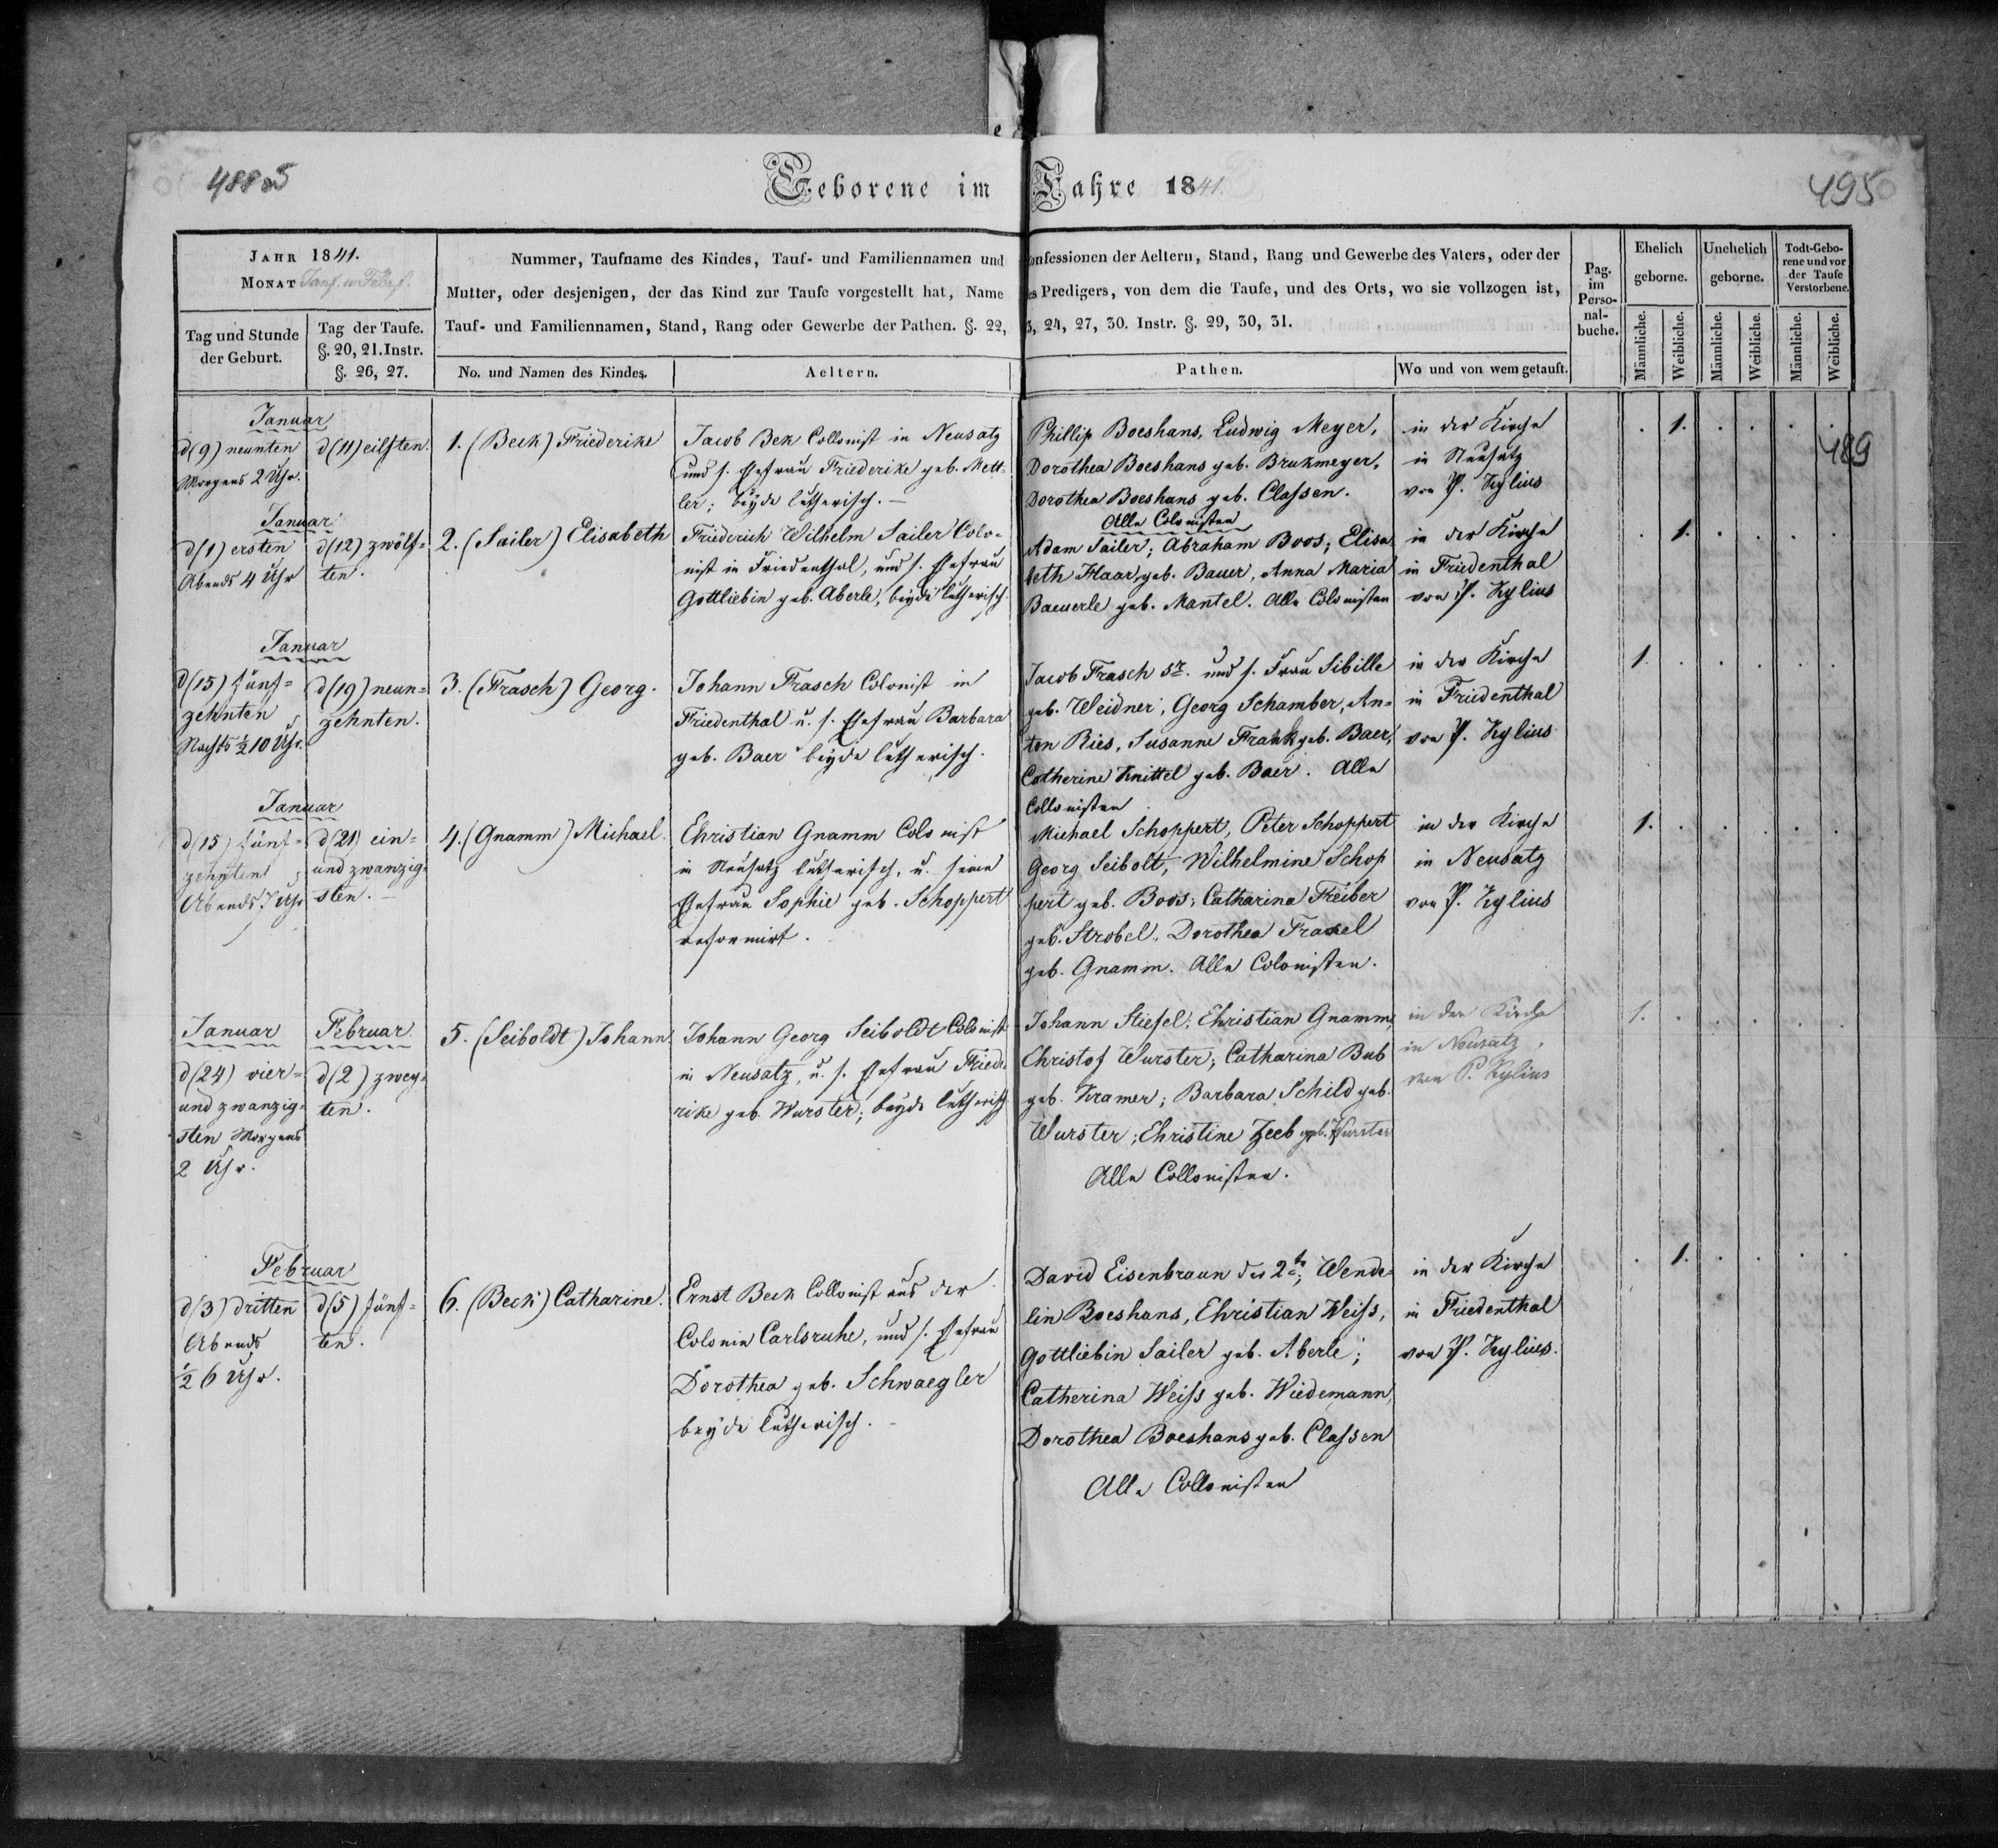 488
495
Geborene im Jahre 1841.
489
JAHR 1841.
MONAT Janr. u. Febr.
Tag und Stunde der Geburt.
Tag der Taufe. §. 20, 21. Instr. §. 26, 27.
Nummer, Taufname des Kindes, Tauf- und Familiennamen und
Mutter, oder desjenigen, der das Kind zur Taufe vorgestellt hat, Name
Tauf- und Familiennamen, Stand, Rang oder Gewerbe der Pathen. §. 22,
No. und Namen des Kindes.
Aeltern.
onfessionen der Aeltern, Stand, Rang und Gewerbe des Vaters, oder der
es Predigers, von dem die Taufe, und des Orts, wo sie vollzogen ist,
3, 24, 27, 30. Instr. §. 29, 30, 31.
Pathen.
Wo und von wem getauft.
Pag. im Perso-nal-buche.
Ehelich geborne.
Unehelich geborne.
Todt-Gebo-rene und vor der Taufe Verstorbene.
Männliche.
Weibliche.
Männliche.
Weibliche.
Männliche.
Weibliche.
Januar
d(9) neunten
Morgens 2 Uhr.
d(11) eilften.
1. (Beck) Friederike
Jacob Bek Collonist in Neusatz
und s. Ehefrau Friederike geb. Mett-
ler; beyde lutherisch. —
Phillip Boeshans, Ludwig Meyer,
Dorothea Boeshans geb. Brukmeyer,
Dorothea Boeshans geb. Classen.
Alle Colonisten
in der Kirche
in Neusatz
von P. Kylius
1.
Januar
d(1) ersten
Abends 4 Uhr
d(12) zwölf-
ten.
2. (Sailer) Elisabeth
Friederich Wilhelm Sailer Colo-
nist in Friedenthal, und s. Ehefrau
Gottliebin geb. Aberle, beyde lutherisch.
Adam Sailer; Abraham Boos; Elisa
beth Haar, geb. Bauer, Anna Maria
Baeuerle geb. Mantel. Alle Colonisten
in der Kirche
in Friedenthal
von P. Kylius
1.
Januar
d(15) fünf-
zehnten
Nachts ½ 10 Uhr.
d(19) neun-
zehnten.
3. (Frasch) Georg.
Johann Frasch Colonist in
Friedenthal u. s. Ehefrau Barbara
geb. Baer beyde lutherisch.
Jacob Frasch sr. und s. Frau Sibille
geb. Weidner, Georg Schamber, An-
ton Ries, Susanne Frank geb. Baer,
Catherine Knittel geb. Baer. Alle
Collonisten
in der Kirche
in Friedenthal
von P. Kylius
1.
Januar
d(15) fünf-
zehnten
Abends 7 Uhr
d(21) ein-
und zwanzig-
sten. —
4. (Gnamm) Michael.
Christian Gnamm Colonist
in Neusatz lutherisch, u. seine
Ehefrau Sophie geb. Schoppert
reformirt.
Michael Schoppert, Peter Schoppert
Georg Seibolt, Wilhelmine Schop
pert geb. Boos; Catharina Treiber
geb. Strobel. Dorothea
geb. Gnamm. Alle Colonisten.
in der Kirche
in Neusatz
von P. Kylius
1.
Januar
d(24) vier-
und zwanzig-
sten Morgens
2 Uhr.
Februar
d(2) zwey-
ten.
5. (Seiboldt) Johann
Johann Georg Seiboldt Colonist
in Neusatz, u. s. Ehefrau Friede-
rike geb. Wurster; beyde lutherisch
Johann Stiefel; Christian Gnamm,
Christof Wurster; Catharina Bub
geb. Kramer; Barbara Schild geb.
Wurster; Christine Zeeb geb. Wurster
Alle Collonisten.
in der Kirche
in Neusatz,
von P. Kylius
1.
Februar
d(3) dritten
Abends
½ 6 Uhr.
d(5) fünf-
ten.
6. (Beck) Catharine.
Ernst Beck Collonist aus der
Colonie Carlsruhe, und s. Ehefrau
Dorothea geb. Schwaegler
beyde lutherisch. —
David Eisenbraun der 2te; Wende-
lin Boeshans, Christian Weiss,
Gottliebin Sailer geb. Aberle;
Catherina Weiss geb. Wiedemann,
Dorothea Boeshans geb. Classen
Alle Collonisten
in der Kirche
in Friedenthal
von P. Kylius.
1.